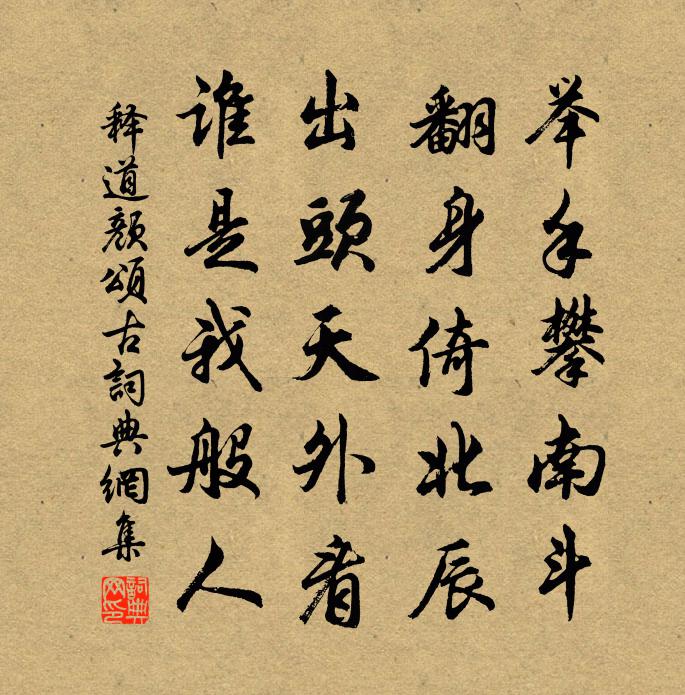 举手攀南斗
翻身倚北辰
出頭天外看
谁是我般人
释道颜頌古詞典網集
詞典网印